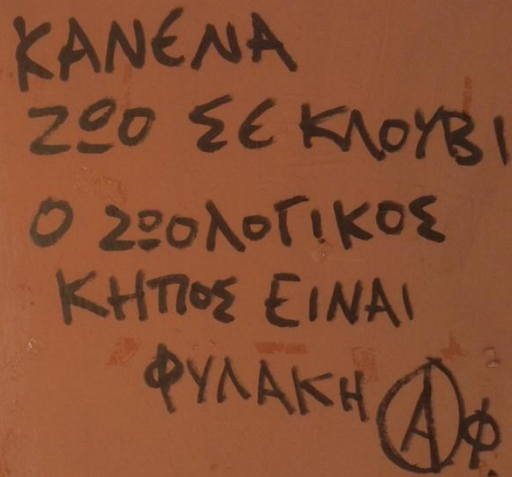 ΚΑΝΕΝΑ
ΖΩΟ ΣΕ ΚΛΟΥΒΙ
Ο ΖΩΟΛΟΓΙΚΟΣ
ΚΗΠΟΣ ΕΙΝΑΙ
ΦΥΛΑΚΗ Ⓐφ.